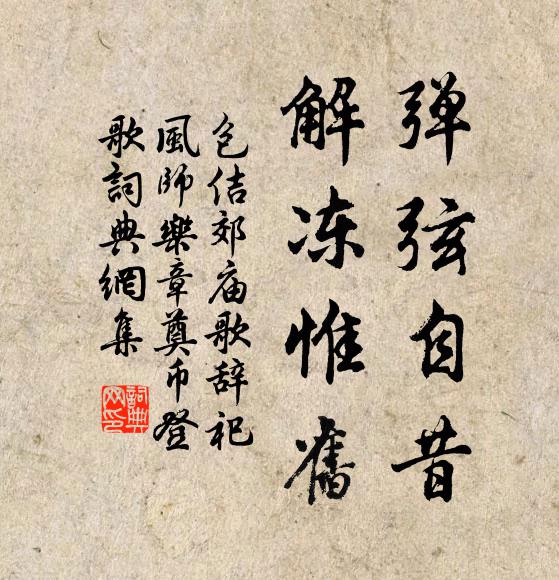 弹弦自昔
解冻惟舊
包佶郊庙歌辞祀
風師樂章奠币登
歌詞典網集
詞典
网印